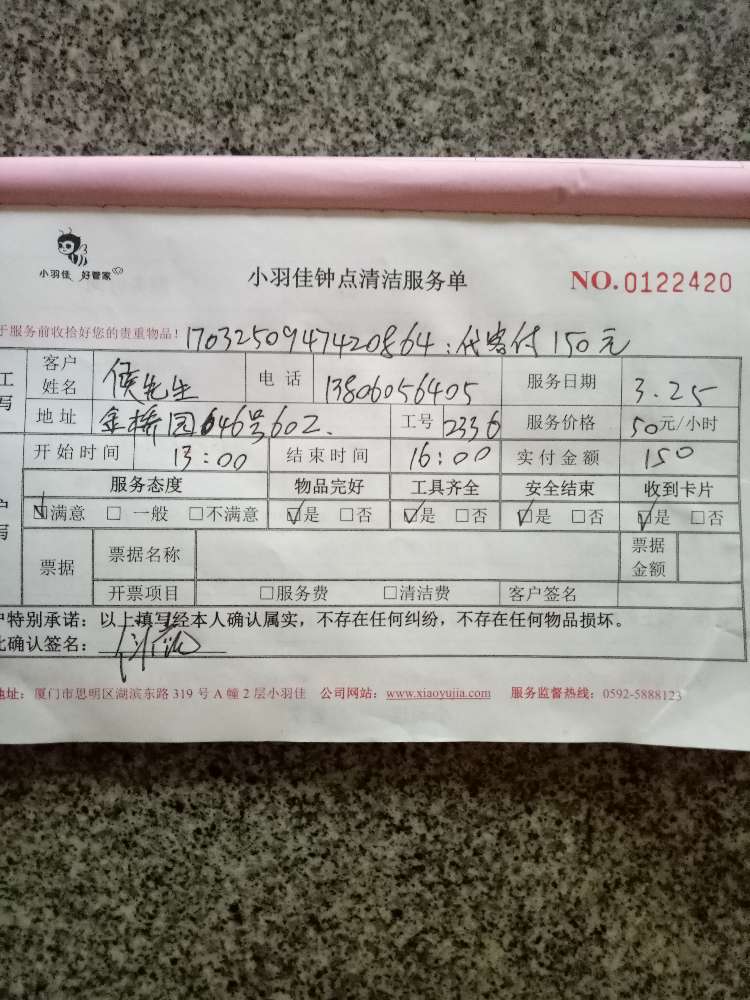 小羽佳 好管家
小羽佳钟点清洁服务单
NO.0122420
于服务前收拾好您的贵重物品！ 1703250947420864：代客付150元
工
写
客户姓名 侯先生 电话 13806056405 服务日期 3.25
地址 金桥园646号602. 工号 2336 服务价格 50元/小时
开始时间 13:00 结束时间 16:00 实付金额 150
服务态度 物品完好 工具齐全 安全结束 收到卡片
户
写
☑满意 □ 一般 □不满意 ☑是 □否 ☑是 □否 ☑是 □否 ☑是 □否
票据 票据名称 票据金额
开票项目 □服务费 □清洁费 客户签名
户特别承诺：以上填写经本人确认属实，不存在任何纠纷，不存在任何物品损坏。
此确认签名：
地址：厦门市思明区湖滨东路 319 号 A 幢 2 层小羽佳 公司网站：www.xiaoyujia.com 服务监督热线：0592-5888123